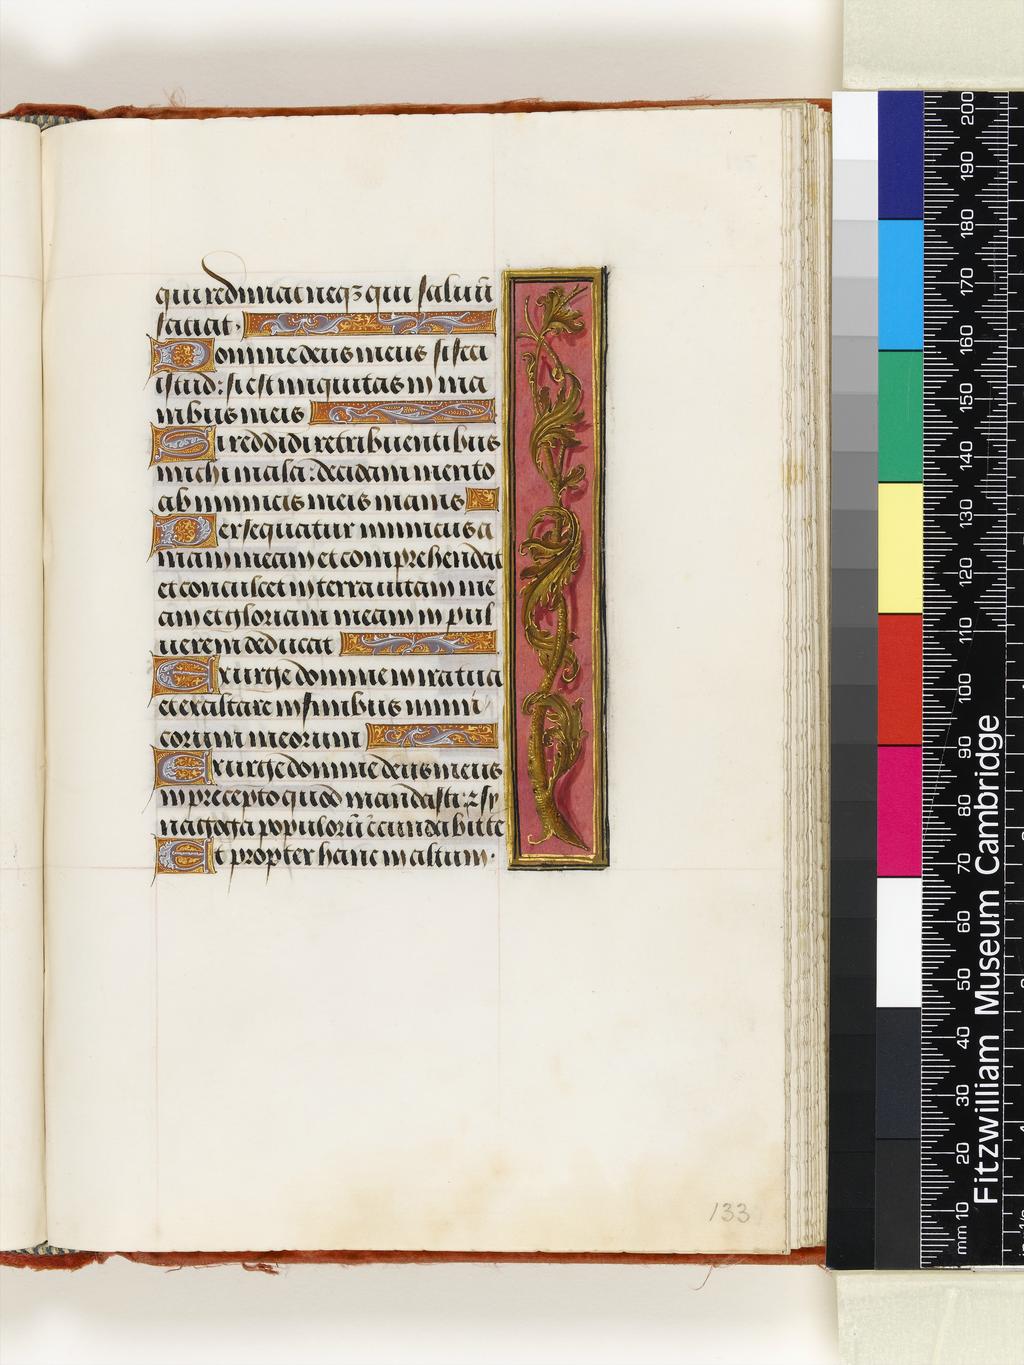 qui redimat neqз qui saluū
faciat.
Domine deus meus si feci
istud: si est iniquitas in ma
nibus meis
Si reddidi retribuentibus
michi mala: decidam merito
ab inimicis meis inanis
Persequatur inimicus a
nimam meam et comprehendat
et conculcet in terra uitam me
am et gloriam meam in pul
uerem deducat
Exurge domine in ira tua
et exaltare in finibus inimi
corum meorum
Exurge domine deus meus
in precepto quod mandasti: ⁊ sy
nagoga populorū circundabit te
Et propter hanc in altum.
133
200
190
180
170
160
150
140
130
120
110
100
90
80
70
60
50
40
30
20
mm 10
Fitzwilliam Museum Cambridge